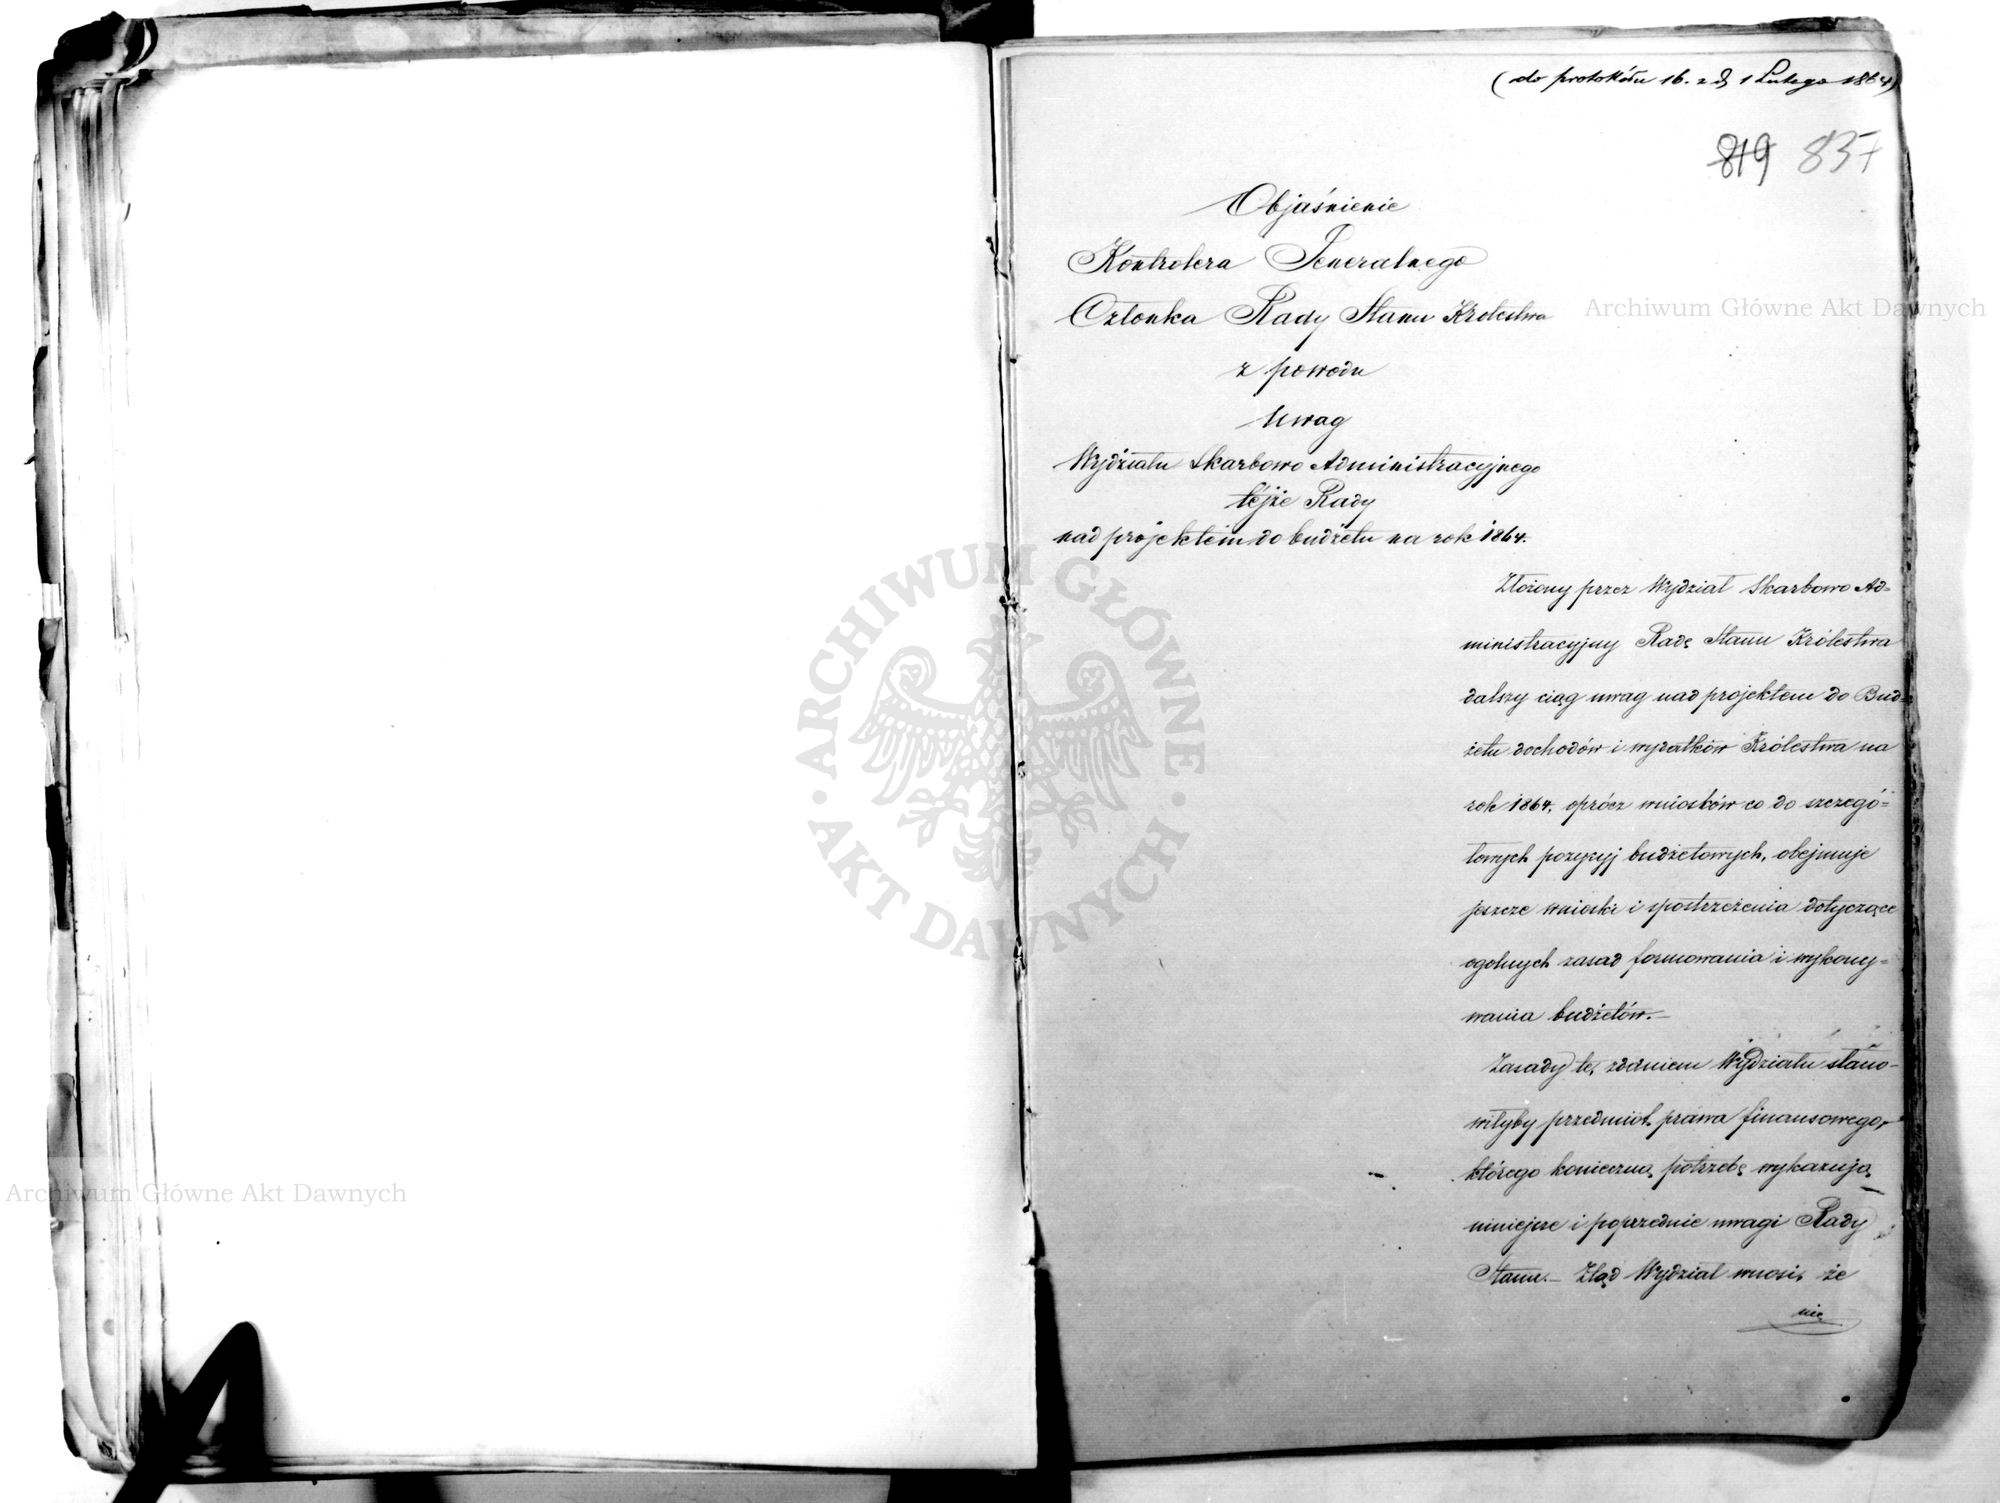 (do protokółu 16. z d. 1 Lutego 1864)
819 837
Objaśnienie
Kontrolera Jeneralnego
Członka Rady Stanu Królestwa
z powodu
Uwag
Wydziału Skarbowo Administracyjnego
téjże Rady
nad projektem do budżetu na rok 1864.
Złożony przez Wydział Skarbowo Ad=
ministracyjny Radę Stanu Królestwa
dalszy ciąg uwag nad projektem do Bud=
żetu dochodów i wydatków Królestwa na
rok 1864, oprócz wniosków co do szczegó=
łowych pozycyj budżetowych, obejmuje
jeszcze wnioski i spostrzeżenia dotyczące
ogolnych zasad formowania i wykony=
wania budżetów.—
Zasady te, zdaniem Wydziału stano-
wiłyby przedmiot prawa finansowego,
którego konieczną potrzebę wykazują
niniejsze i poprzednie uwagi Rady
Stanu.— Ztąd Wydział wnosi, że
nie
Archiwum Główne Akt Dawnych
ARCHIWUM GŁÓWNE
AKT DAWNYCH
Archiwum Główne Akt Dawnych